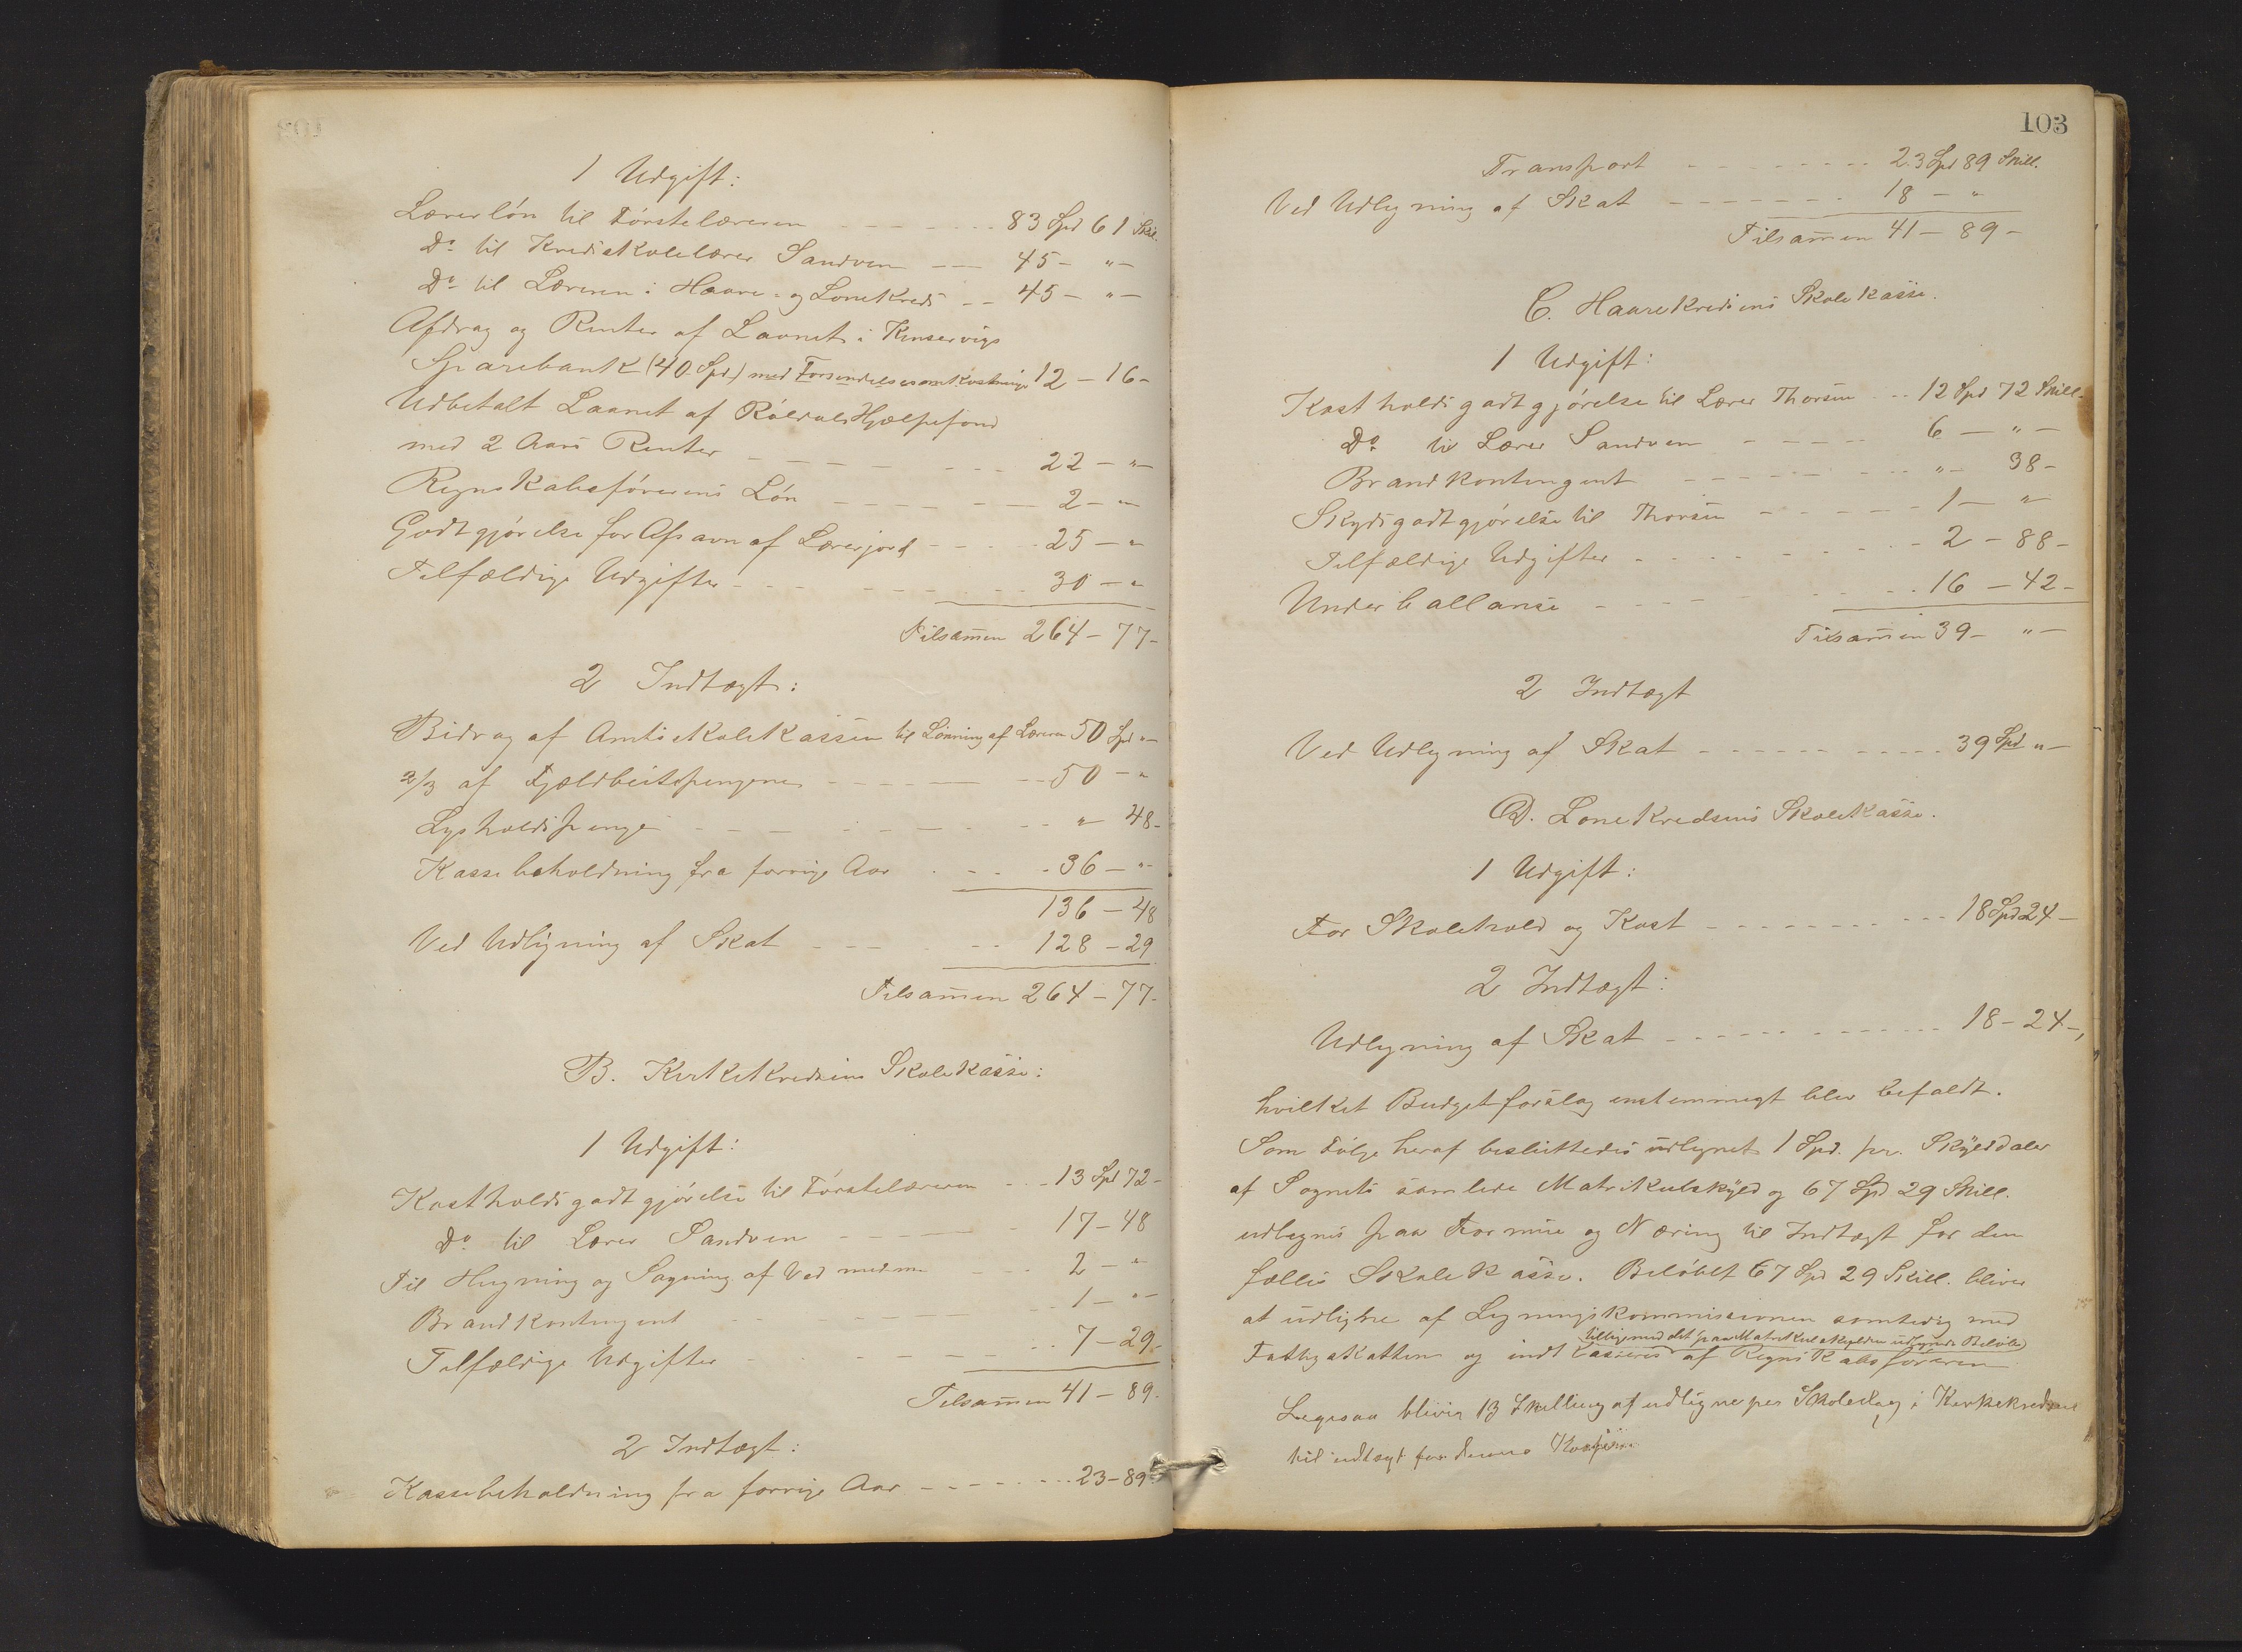 1 Udgift:
Lærerløn til Førstelæreren - - - - - - - 83 Spd 61 Skil.
Do til Kredsskolelærer Sandven - - - 45 - " -
Do til Læreren i Haare- og Lonekreds - - 45 - " -
Afdrag og Renter af Laanet i Kinservigs
Sparebank (40 Spd) med Forsendelsesomkostninger 12 - 16 -
Udbetalt Laanet af Røldals Hjælpefond
med 2 Aars Renter - - - - - - - - 22 - " -
Regnskabsførerens Løn - - - - - - 2 - " -
Godtgjørelse for Afsavn af Lærerjord - - - - 25 - "
Tilfældige Udgifter - - - - - - - - - 30 - "
Tilsammen 264 - 77 -
2 Indtægt:
Bidrag af Amtsskolekassen til Lønning af Læreren 50 Spd " -
2/3 af Fjeldbeitspengene - - - - - - 50 - "
Lysholdspenge - - - - - - - - " 48 -
Kassebeholdning fra forrige Aar - - - - 36 - "
136 - 48
Ved Udligning af Skat - - - - - 128 - 29
Tilsammen 264 - 77 -
B. Kirkekredsens Skolekasse:
1 Udgift:
Kostholdsgodtgjørelse til Førstelæreren - - - 13 Spd 72 -
Do til Lærer Sandven - - - - - 17 - 48
Til Hugning og Sagning af Ved m.m. - - - 2 - "
Brandkontingent - - - - - - 1 - " -
Tilfældige Udgifter - - - - - - - 7 - 29 -
Tilsammen 41 - 89 -
2 Indtægt:
Kassebeholdning fra forrige Aar - - - - - - 23 - 89 -
103
Transport - - - - - - - - 23 Spd 89 Skill.
Ved Udlegning af Skat - - - - - - - 18 - "
Tilsammen 41 - 89 -
C. Haarekredsens Skolekasse.
1 Udgift:
Kostholdsgodtgjørelse til Lærer Thorsen - - 12 Spd 72 Skill.
Do til Lærer Sandven - - - - - 6 - " -
Brandkontingent - - - - - - - " - 38 -
Skydsgodtgjørelse til Thorsen - - - - - - 1 - "
Tilfældige Udgifter - - - - - - - - 2 - 88 -
Underballanse - - - - - - - - 16 - 42 -
Tilsammen 39 - " -
2 Indtægt
Ved Udlegning af Skat - - - - - - - - - 39 Spd " -
D. Lonekredsens Skolekasse.
1 Udgift:
For Skolehold og Kost - - - - - - - - - 18 Spd 24 -
2 Indtægt:
Udlegning af Skat - - - - - - - - - - 18 - 24 -,
hvilket Budgetforslag enstemmigt blev bifaldt.
Som Følge heraf besluttedes udlignet 1 Spd. pr. Skylddaler
af Sognets samlede Matrikulskyld og 67 Spd 29 Skill.
udlignes paa Formue og Næring til Indtægt for den
fælles Skolekasse. Beløbet 67 Spd 29 Skill. bliver
at udligne af Ligningskommissionen samtidig med
tilligemed det paa Matrikulskylden udlignede Beløb
Fattigskatten og indkasseres af Regnskabsføreren
Ligesaa bliver 13 Skilling at udligne per Skoledag i Kirkekredsen
til indtægt for denne Kasse.